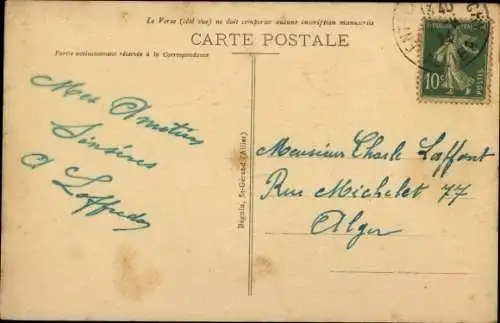 Le Verso (côté vue) ne doit comporter aucune inscription manuscrite
CARTE POSTALE
Partie exclusivement réservée à la Correspondance
10c
POSTES
Mes Amitiés
Sincères
Bignin, St-Gérand (Allier)
Monsieur Charle Laffont
Rue Michelet 77
Alger